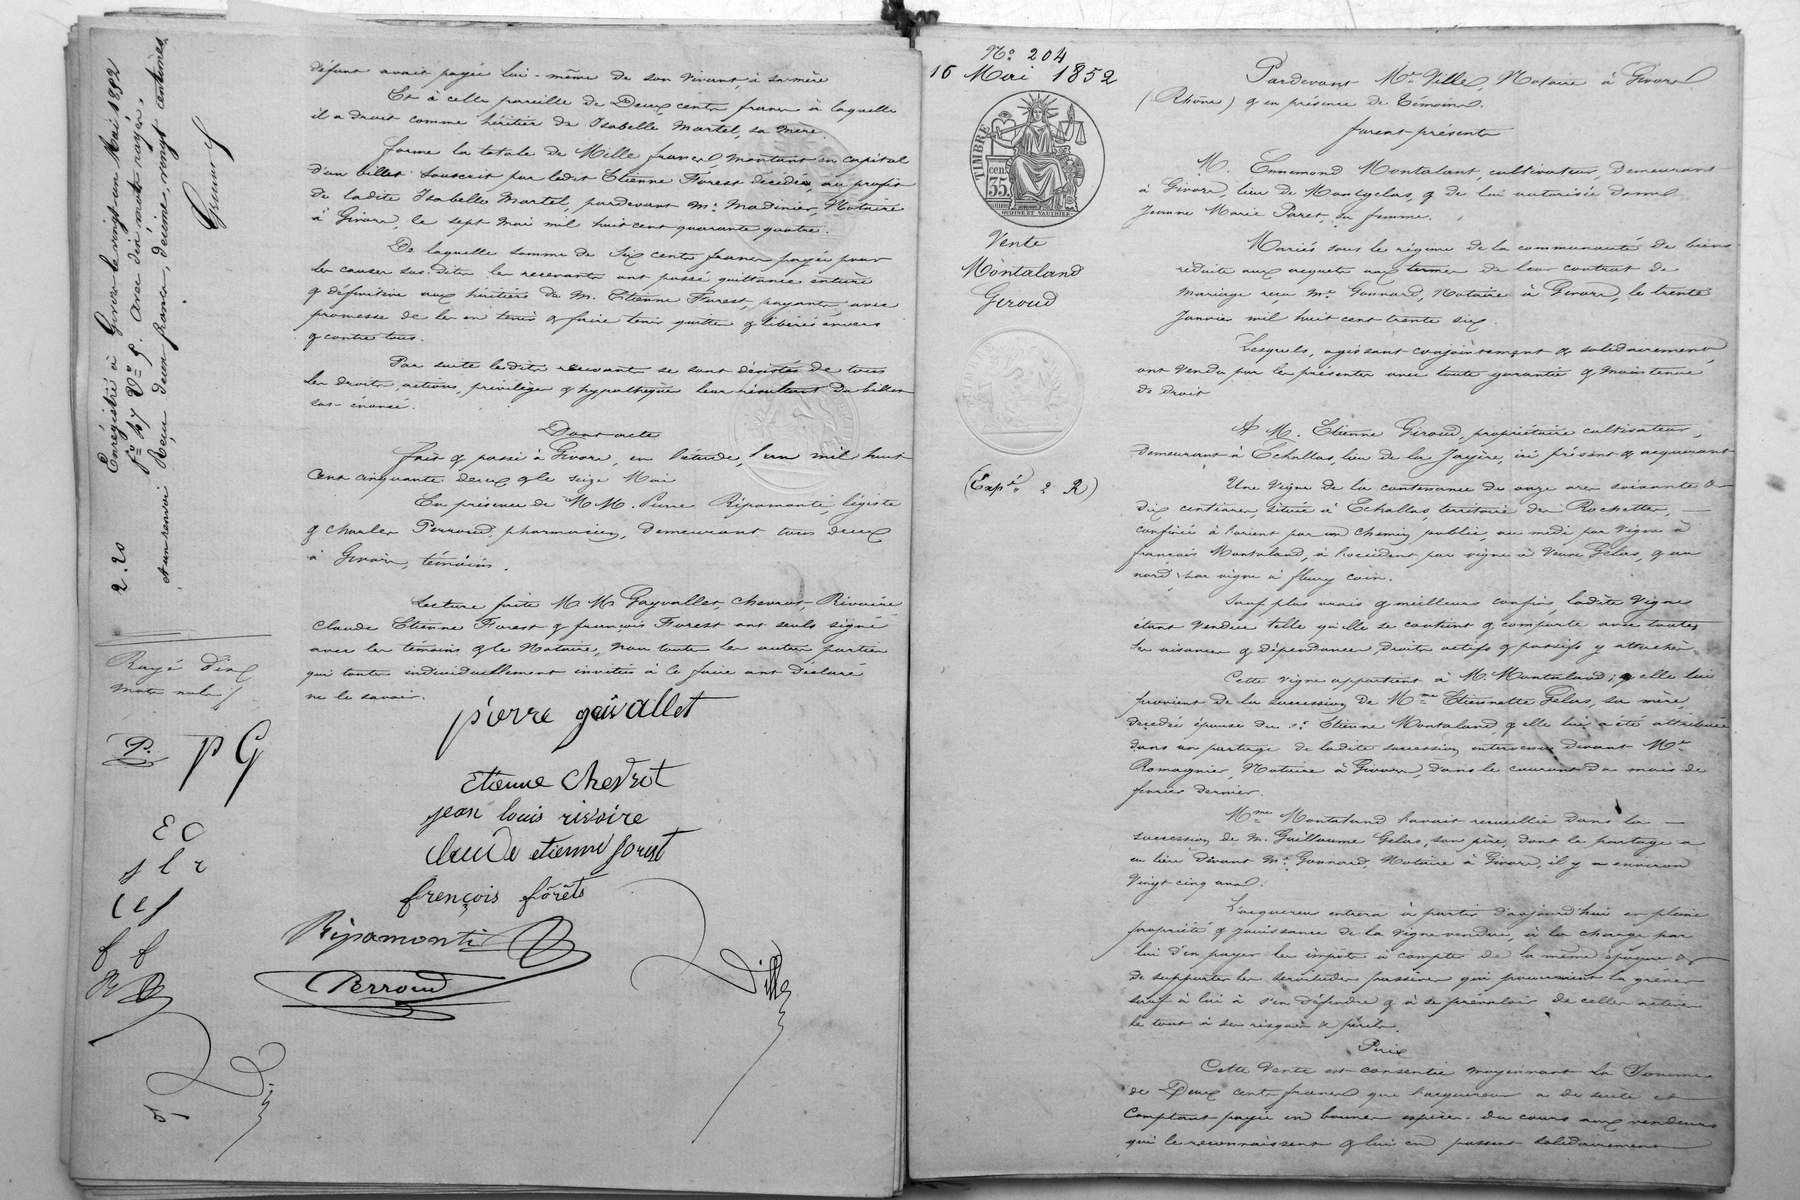 défunt avait payée lui-même de son vivant, à sa mère
Et à celle pareille de Deux cents francs à laquelle
il a droit comme héritier de Isabelle Martel, sa mère.
forme la totale de Mille francs, montant en capital
d'un billet souscrit par ledit Etienne Forest décédé au profit
de ladite Isabelle Martel, pardevant Me Madinier, Notaire
à Givors, le sept Mai mil huit cent quarante quatre.
De laquelle somme de Six cents francs payée pour
les causes sus-dites les recevants ont passé quittance entière
& définitive aux héritiers de M. Etienne Forest, payants, avec
promesse de les en tenir & faire tenir quittes & libérés envers
& contre tous.
Par suite lesdits recevants se sont désistés de tous
les droits, actions, privilèges & hypothèques leur résultant du billet
sus-énoncé.
Dont acte
fait & passé à Givors, en l'étude, l'an mil huit
cent cinquante deux & le seize Mai
En présence de MM. Pierre Ripamonti, légiste
& Charles Perroud, pharmacien, demeurant tous deux
à Givors, témoins.
Lecture faite MM Gayvallet, Chevrot, Rivoire,
Claude Etienne Forest & françois Forest ont seuls signé
avec les témoins & le Notaire, non toutes les autres parties
qui toutes individuellement invitées à ce faire ont déclaré
ne le savoir.
pierre gaivallet
Etienne Chevrot
jean louis rivoire
claude etienne forest
françois fôrêts
Ripamonti
Perroud
Ville
Enregistré à Givors le vingt-un Mai 1852
fo 47 Vo 5. avec dix mots rayés.
et un renvoi Reçu deux francs, décime, vingt centimes
2.20
Rayé dix
mots nuls
P. P G
E C
j l r
C e f
f f
R
No 204
16 Mai 1852
TIMBRE
35 cen
Vente
Montaland
Giroud
(Expon 2 R)
Pardevant Me Ville, Notaire à Givors
(Rhône) & en présence de témoins.
furent présents
M. Ennemond Montalant, cultivateur, demeurant
à Givors, lieu de Montgelas, & de lui autorisée dame
Jeanne Marie Paret, sa femme.
Mariés sous le régime de la communauté de biens
réduite aux acquets aux termes de leur contrat de
mariage reçu Me Gonnard, Notaire à Givors, le trente
Janvier mil huit cent trente six.
Lesquels, agissant conjointement & solidairement,
ont vendu par les présentes avec toute garantie & maintenue
de droit
A M. Etienne Giroud, propriétaire cultivateur,
demeurant à Echallas, lieu de la Jayère, ici présent & acquérant
Une Vigne de la contenance de onze ares soixante &
dix centiares, située à Echallas, territoire des Rochettes,
confinée à l'orient par un chemin public, au midi par Vigne à
françois Montaland, à l'occident par vigne à Veuve Gelas, & au
nord par vigne à fleury coin.
Sauf plus vrais & meilleurs confins, ladite Vigne
étant vendue telle qu'elle se contient & comporte avec toutes
ses aisances & dépendances, droits actifs & passifs y attachés.
Cette vigne appartient à M. Montaland; & elle lui
provient de la succession de Mme Etiennette Gelas, sa mère,
décédée épouse du sr Etienne Montaland, & elle lui a été attribuée
dans un partage de ladite succession intervenu devant Me
Romagnier, Notaire à Givors, dans le courant du mois de
février dernier.
Mme Montaland l'avait recueillie dans la
succession de M. Guillaume Gelas, son père, dont le partage a
eu lieu devant Me Gonnard, Notaire à Givors, il y a environ
Vingt cinq ans.
L'acquéreur entrera à partir d'aujourd'hui en pleine
propriété & jouissance de la Vigne vendue, à la charge par
lui d'en payer les impôts à compter de la même époque &
de supporter les servitudes passives qui pourraient la gréver
sauf à lui à s'en défendre & à se prévaloir de celles actives
le tout à ses risques & périls.
Prix
Cette Vente est consentie moyennant la Somme
de Deux cents francs que l'acquéreur a de suite et
comptant payée en bonnes espèces du cours aux vendeurs
qui le reconnaissent & lui en passent solidairement